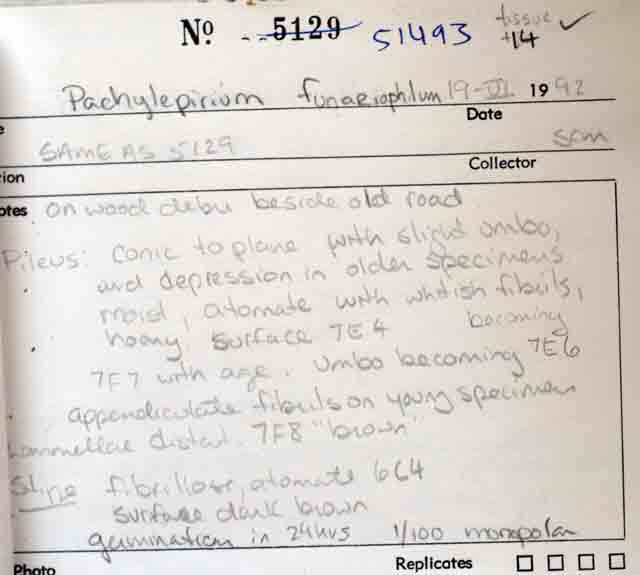 No 5129 51493 tissue ✓
+14
Pachylepirium funariophilum 19-VI 1992
Date
SAME AS 5129 SCM
ion Collector
otes on wood debri beside old road
Pileus: Conic to plane with slight umbo,
and depression in older specimens
moist, atomate with whitish fibrils,
hoary. Surface 7E4 becoming
7F7 with age. Umbo becoming 7E6
appendiculate fibrils on young specimen
Lammellae distant. 7F8 "brown"
Stipe fibrillose, atomate 6C4
surface dark brown
germination in 24hrs 1/100 monopolar
Photo Replicates